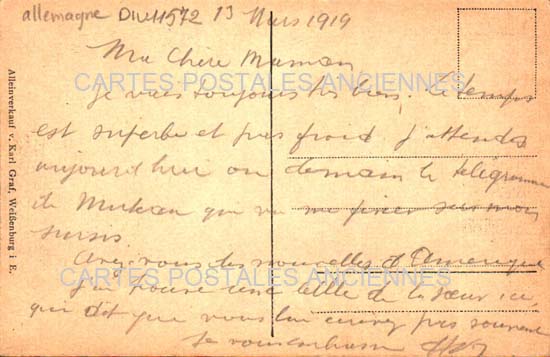 allemagne DIV11572 13 Mars 1919
Ma Chère Maman
CARTES POSTALES ANCIENNES
Je vais toujours très bien, le temps
est superbe et pas froid j'attends
aujourd'hui ou demain le télégramme
de qui va me fixer sur mon
sursis.
Avez-vous des nouvelles d'Amérique
CARTES POSTALES ANCIENNES
J'ai trouvé une lettre de la sœur ici,
qui dit que vous lui écrivez pas souvent
Je vous embrasse
Alleinverkauf v. Karl Graf, Weißenburg i E.